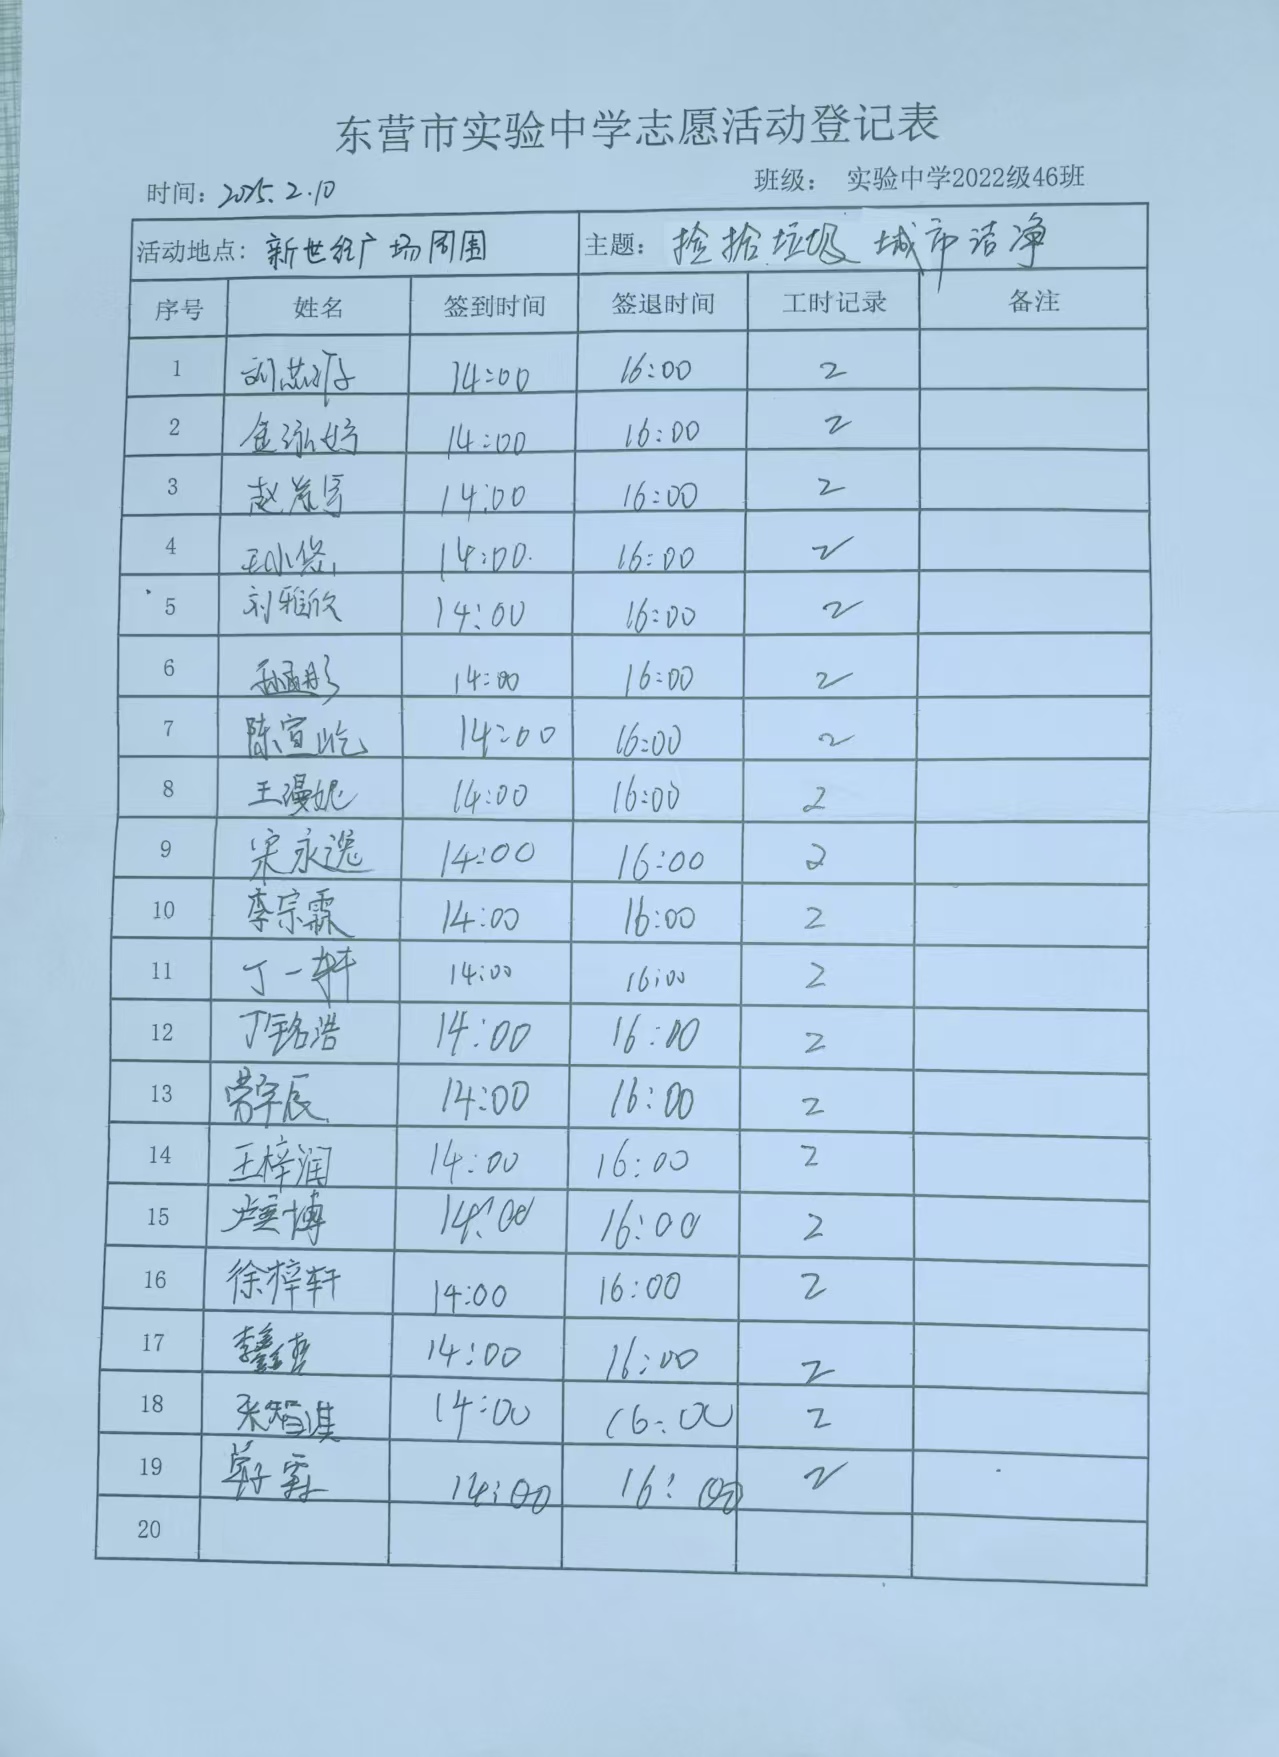 东营市实验中学志愿活动登记表
时间: 2025.2.10 班级: 实验中学2022级46班
活动地点: 新世纪广场周围 主题: 捡拾垃圾 城市洁净
序号 姓名 签到时间 签退时间 工时记录 备注
1 14:00 16:00 2
2 14:00 16:00 2
3 14:00 16:00 2
4 王小悠 14:00 16:00 2
5 刘雅欣 14:00 16:00 2
6 14:00 16:00 2
7 陈宣屹 14:00 16:00 2
8 王漫妮 14:00 16:00 2
9 宋永逸 14:00 16:00 2
10 李宗霖 14:00 16:00 2
11 丁一轩 14:00 16:00 2
12 丁铭浩 14:00 16:00 2
13 14:00 16:00 2
14 王梓润 14:00 16:00 2
15 14:00 16:00 2
16 徐梓轩 14:00 16:00 2
17 李鑫哲 14:00 16:00 2
18 张智淇 14:00 16:00 2
19 14:00 16:00 2
20